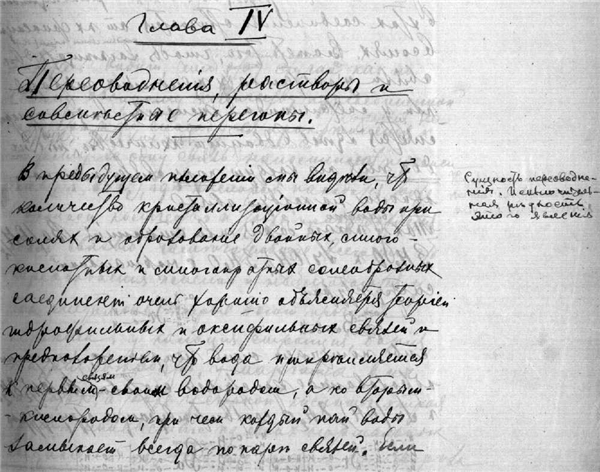 Глава IV
Переоводнения, растворы и
совместные перегоны.
В предыдущем изложении мы видели, что
количество кристаллизационной воды при
солях и образование двойных, много-
кислотных и многократных солеобразных
соединений очень хорошо объясняется теорией
гидрофильных и оксифильных связей и
предположением, что вода прикрепляется
к первым своим водородом, а ко вторым
кислородом, при чем каждый пай воды
замыкает всегда по паре связей. Если
Сущность переоводне-
ния.
ная редкость
этого явления